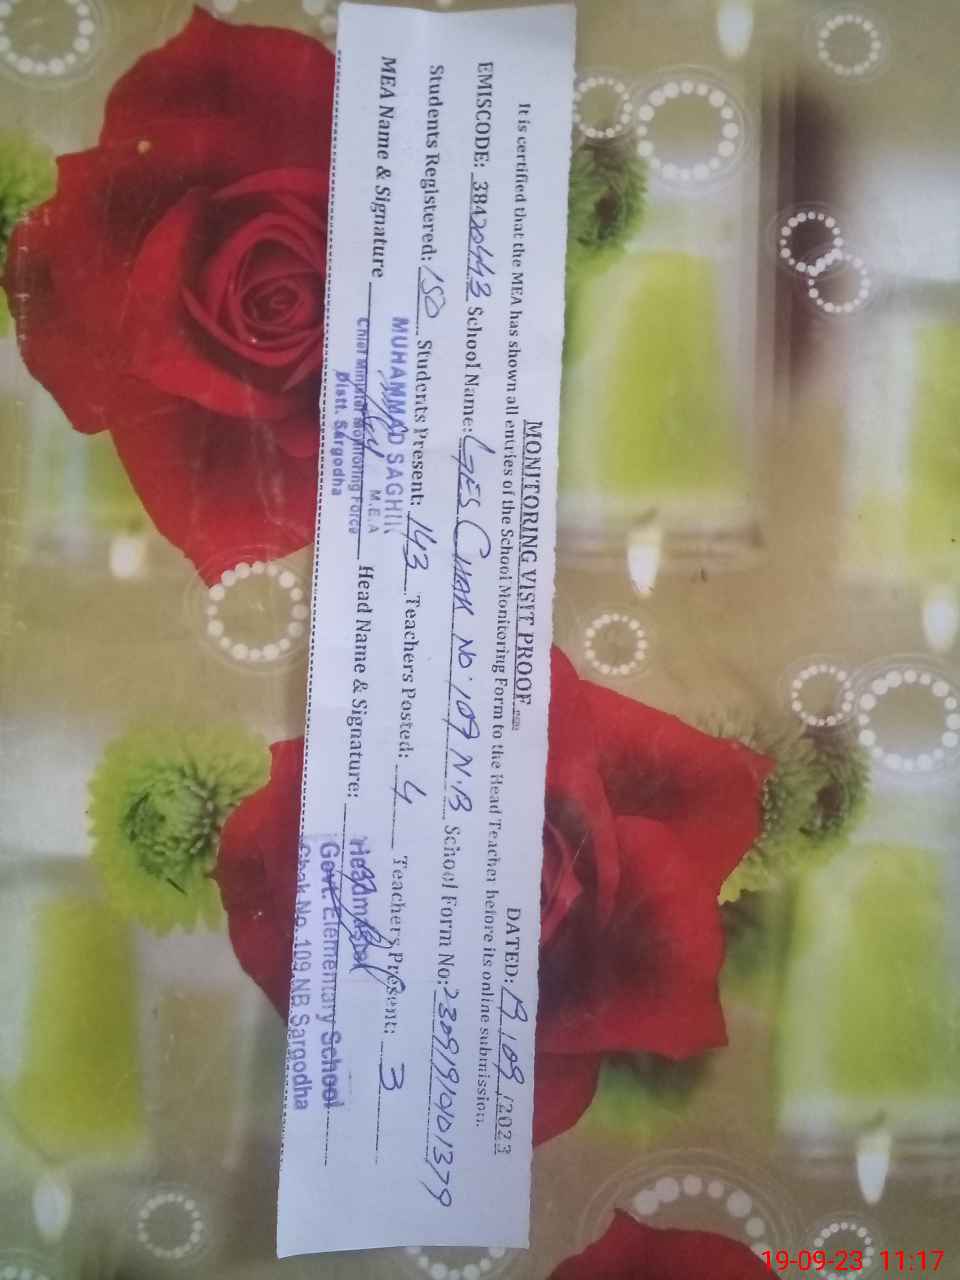 MONITORING VISIT PROOF
DATED: 19/09/2023
It is certified that the MEA has shown all entries of the School Monitoring Form to the Head Teacher before its online submission.
EMISCODE: 38420443 School Name: GES CHAK NO. 109 N.B School Form No: 2309191001379
Students Registered: 150 Students Present: 143 Teachers Posted: 4 Teachers Present: 3
MEA Name & Signature Head Name & Signature:
MUHAMMAD SAGHIR
M.E.A
Chief Minister Monitoring Force
Distt. Sargodha
Headmaster
Govt. Elementary School
Chak No. 109 NB Sargodha
19-09-23 11:17